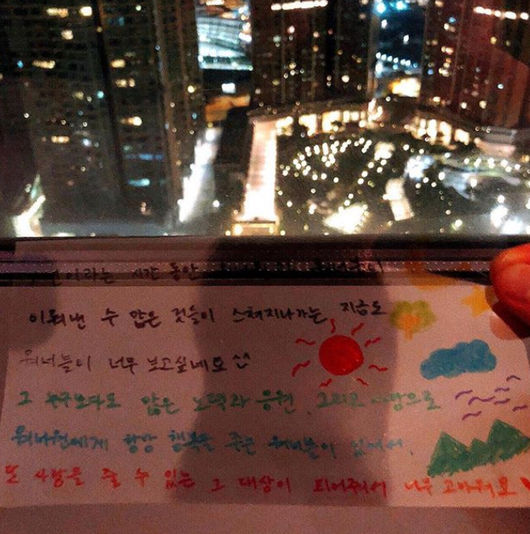 이라는 시간 동안
이뤄낸 수 많은 것들이 스쳐지나가는, 지금도
워너블이 너무 보고싶네요^^
그 누구보다도 많은 노력과 응원, 그리고 사랑으로
워너원에게 항상 행복을 주는 워너블이 있어서,
또 사랑을 줄 수 있는 그 대상이 되어줘서 너무 고마워요